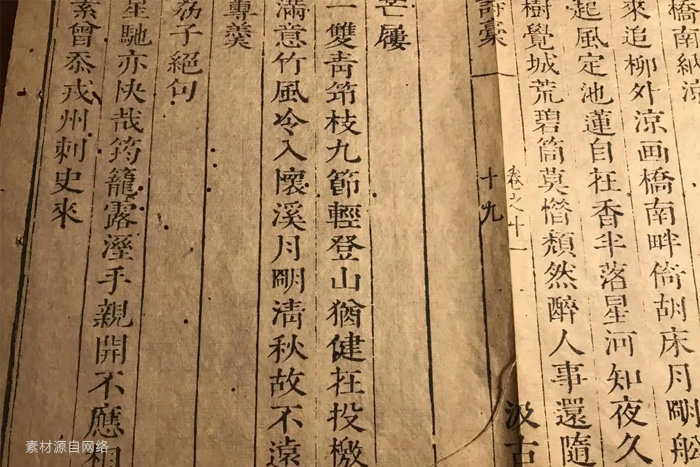 橋南納涼
來追柳外涼画橋南畔倚胡床月明船
起風定池蓮自在香半落星河知夜久
樹覺城荒碧筒莫惜頹然醉人事還隨
詩稾
卷之十一
十九
汲古
芒屨
一雙青笻枝九節輕登山猶健在投檄
滿意竹風冷入懷溪月明清秋故不遠
蓴羹
荔子絕句
星馳亦快哉筠籠露溼手親開不應相
曾忝戎州刺史來
素材源自网络